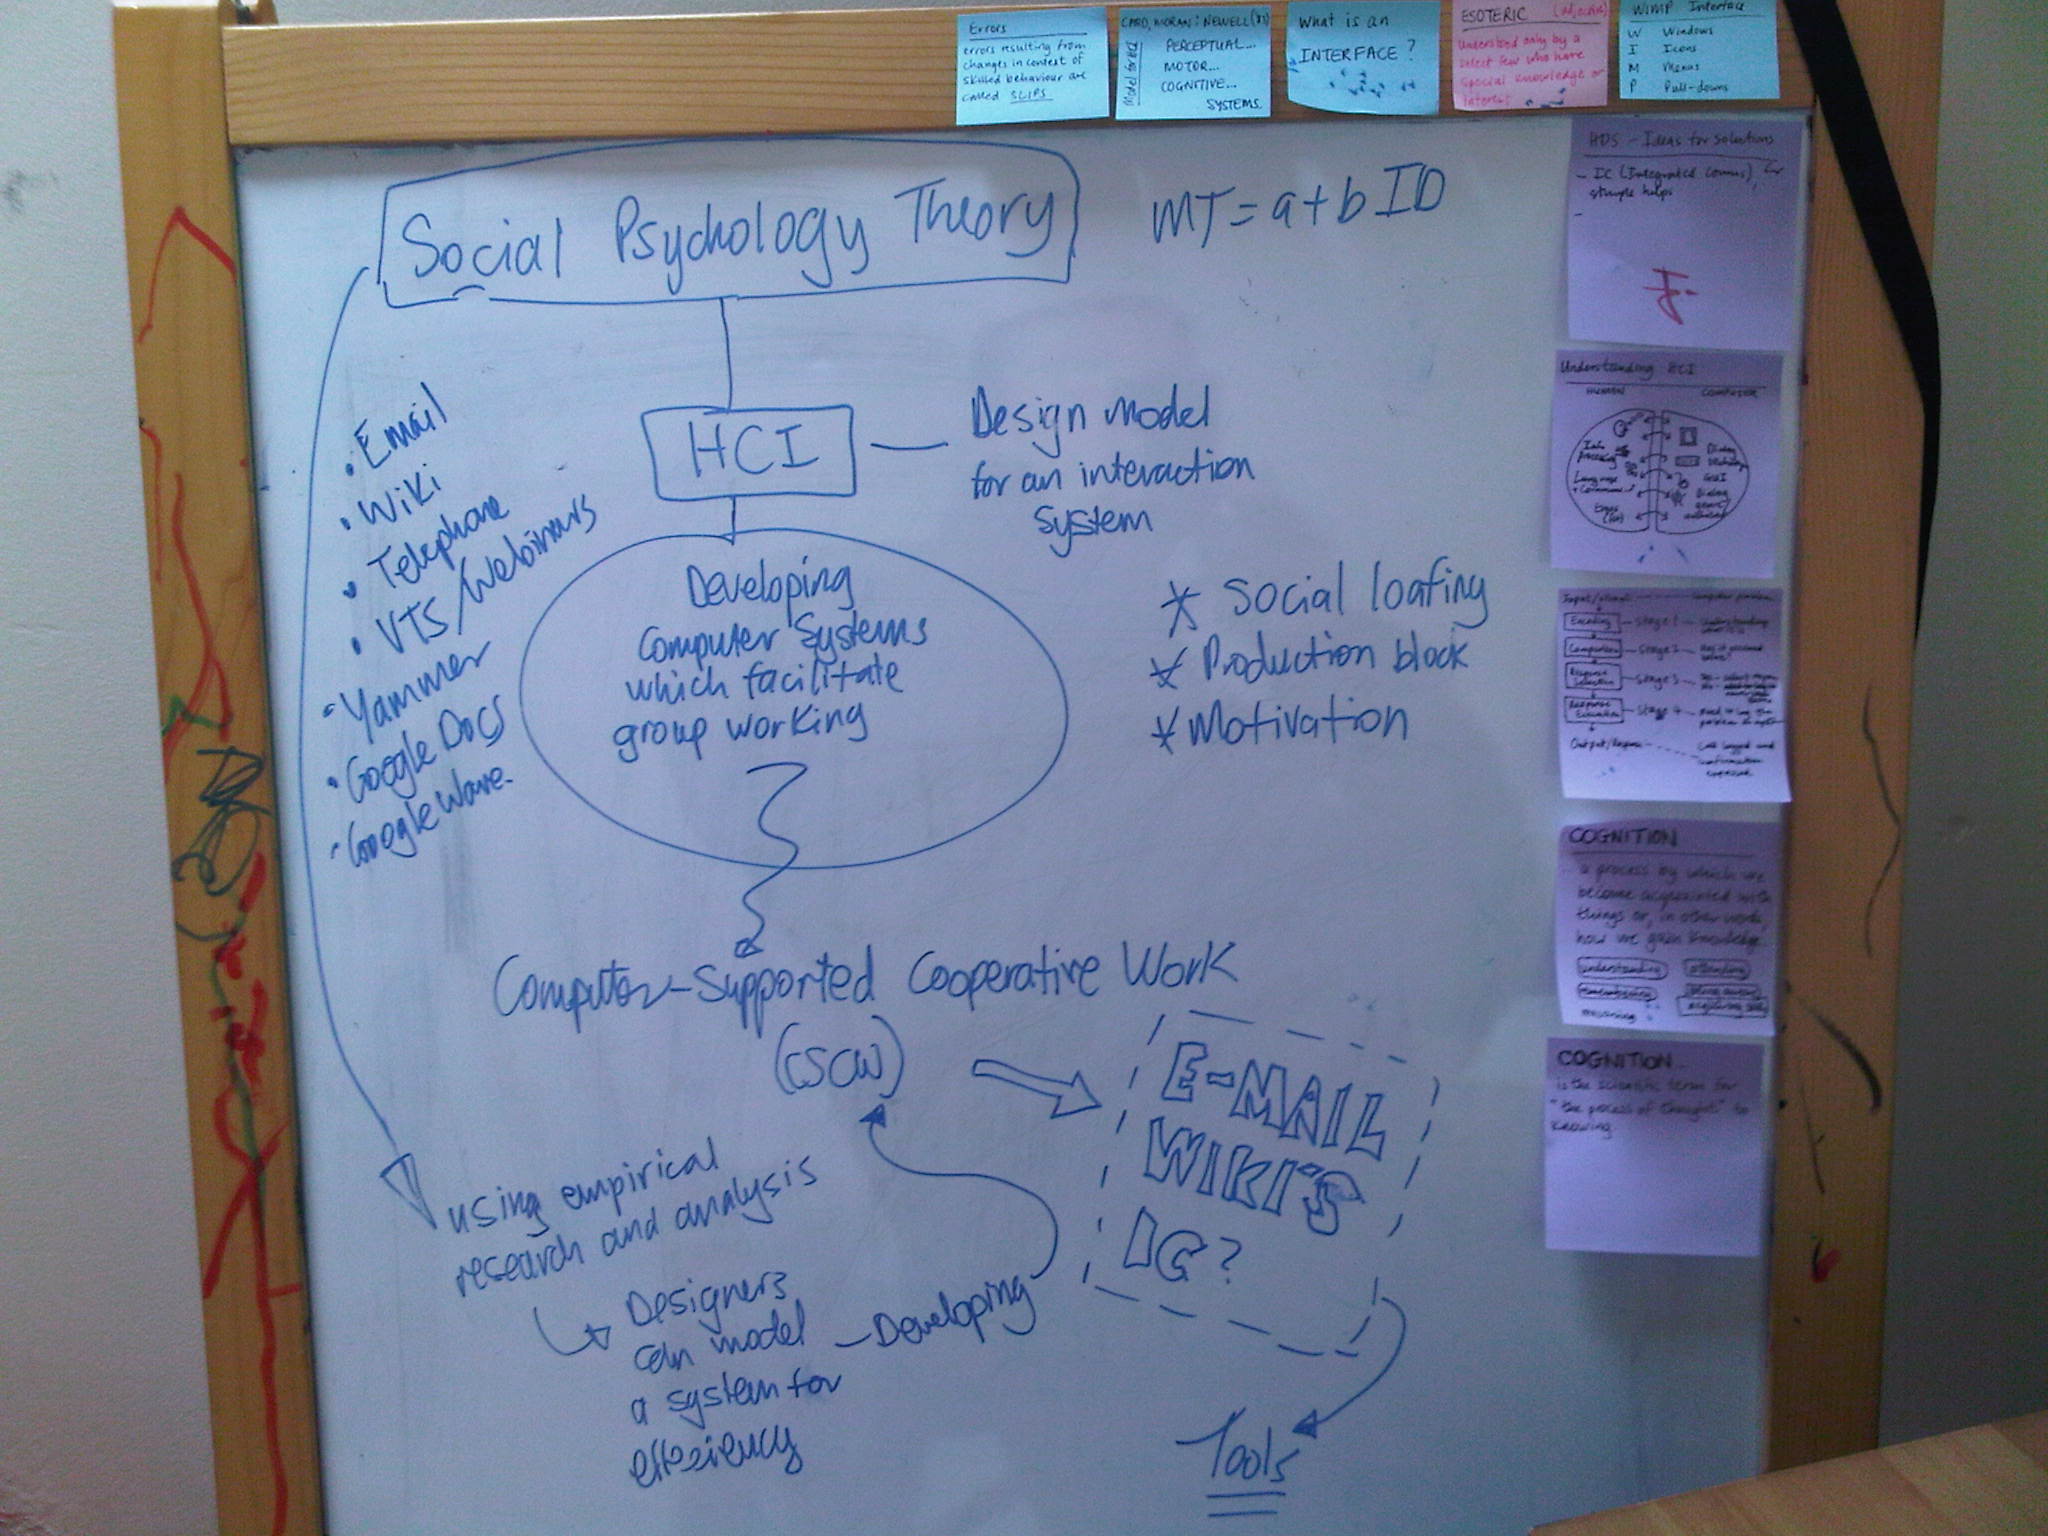 Errors
errors resulting from
changes in context of
skilled behaviour are
called SLIPS
CARD, MORAN: NEWELL
PERCEPTUAL...
MOTOR...
COGNITIVE...
SYSTEMS
What is an
INTERFACE?
ESOTERIC (adjective)
Understood only by a
select few who have
special knowledge or
interest
WIMP Interface
W Windows
I Icons
M Menus
P Pull-downs
Social Psychology Theory
MT = a + b ID
HCI
Design model
for an interaction
system
• Email
• Wiki
• Telephone
• VTS/Webinars
- Yammer
• Google Docs
- Google Wave.
Developing
Computer Systems
which facilitate
group working
* Social loafing
* Production block
* Motivation
Computer-Supported Cooperative Work
(CSCW)
E-MAIL
WIKI'S
IC?
using empirical
research and analysis
Designers
can model
a system for
efficiency
- Developing
Tools
HDS - Ideas for solutions
- IC (Integrated comms),
simple helps
Understanding HCI
HUMAN COMPUTER
Info
processing
Language
GUI
Dialog
Encoding - Stage 1 - Understanding
Comparison - Stage 2
Response
Selection - Stage 3
Response
Execution - Stage 4
Output/Response
Call logged and
confirmation
COGNITION
a process by which we
become acquainted with
things or, in other words,
how we gain knowledge.
understanding attending
remembering
reasoning acquiring
COGNITION...
is the scientific term for
"the process of thought" to
knowing